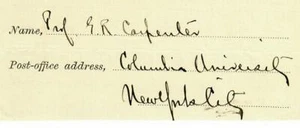 Name, Prof G. R. Carpenter
Post-office address, Columbia University
New York City